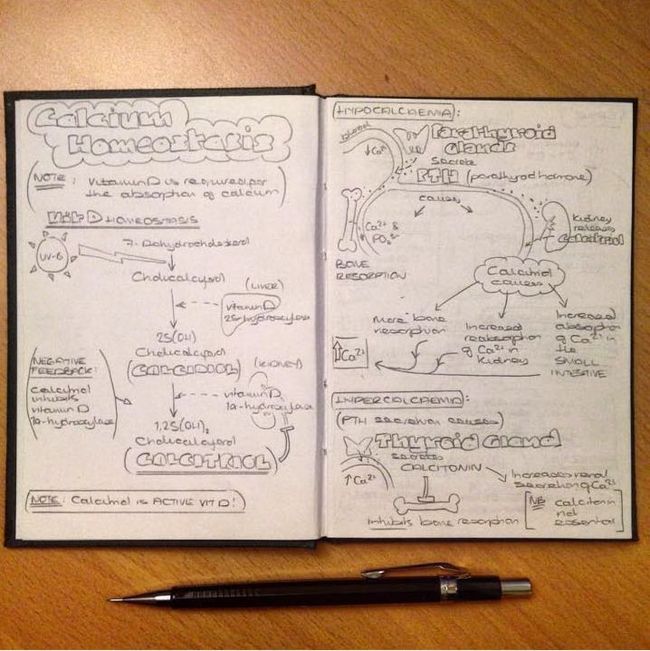 Calcium
Homeostasis
NOTE: Vitamin D is required for
the absorption of calcium
Vit D HOMEOSTASIS
UV-B
7-Dehydrocholesterol
Cholicalcyterol
(LIVER)
vitamin D
25-hydroxylase
25(OH)
Cholicalcyferol
(CALCIDIOL)
(KIDNEY)
vitamin D
1α-hydroxylase
NEGATIVE
FEEDBACK:
Calcitriol
inhibits
vitamin D
1α-hydroxylase
1,25(OH)₂
Cholicalcyferol
(CALCITRIOL)
NOTE: Calcitriol is ACTIVE VIT D!
HYPOCALCAEMIA:
blood
↓Ca²⁺
Parathyroid
Glands
Secrete
PTH (parathyroid hormone)
causes
Ca²⁺ &
PO₄³⁻
BONE
RESORPTION
Kidney
releases
Calcitriol
Calcitriol
causes
More bone
resorption
Increased
reabsorption
of Ca²⁺ in
kidney
Increased
absorption
of Ca²⁺ in
the
SMALL
INTESTINE
↑Ca²⁺
HYPERCALCAEMIA:
(PTH secretion ceases)
Thyroid Gland
secretes
CALCITONIN
↑Ca²⁺
Increases renal
secretion of Ca²⁺
Inhibits bone resorption
NB calcitonin
not
essential